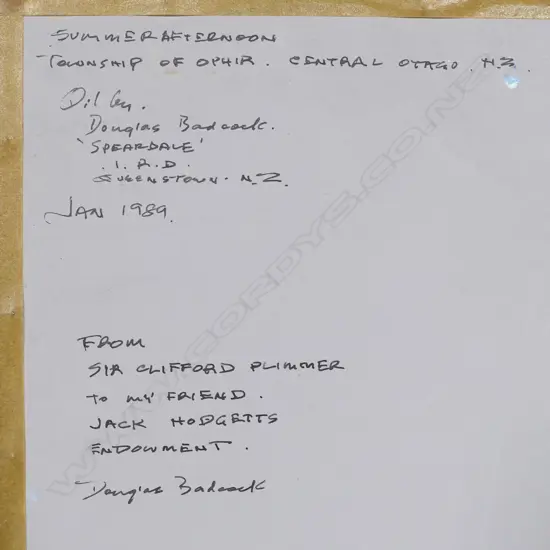 SUMMER AFTERNOON
TOWNSHIP OF OPHIR. CENTRAL OTAGO. N.Z.
Oil by.
Douglas Badcock.
'SPEARDALE'
.I.R.D.
QUEENSTOWN. N.Z.
JAN 1989.
FROM
SIR CLIFFORD PLIMMER
TO MY FRIEND.
JACK HODGETTS
ENDOWMENT.
Douglas Badcock
WWW.CORDYS.CO.NZ